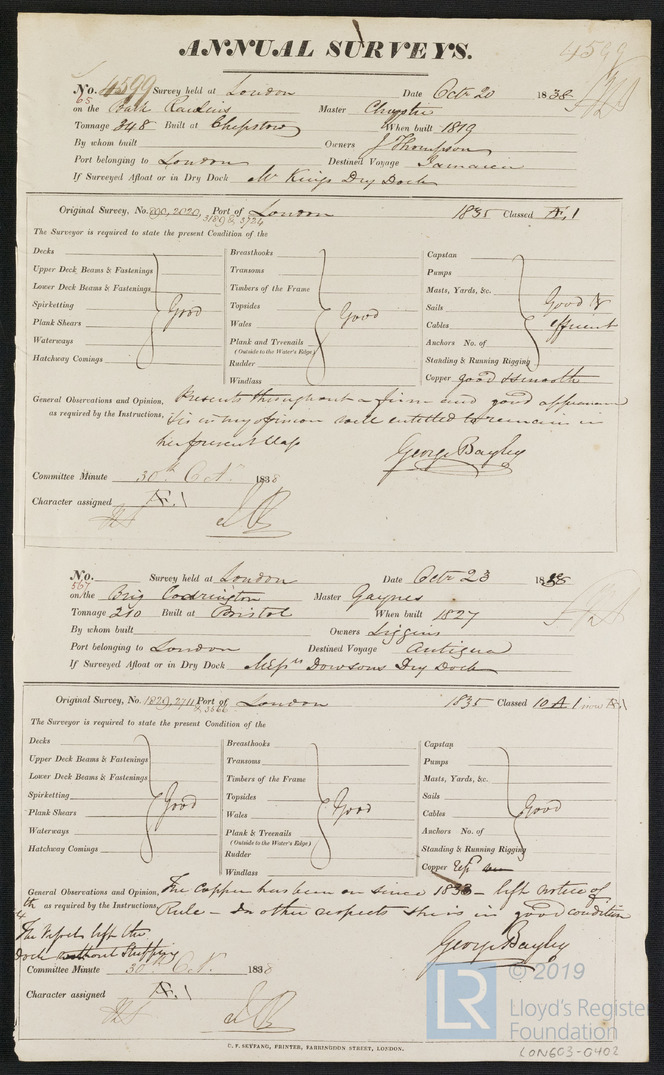 ANNUAL SURVEYS.
4599
No. 4599 Survey held at London Date Octr 20 1838
65
on the Bark Rawlins Master Chrystie
Tonnage 348 Built at Chepstow When built 1819
By whom built Owners J Thompson
Port belonging to London Destined Voyage Jamaica
If Surveyed Afloat or in Dry Dock Mr Kings Dry Dock
Original Survey, No. 890, 2020, 3189 & 3724 Port of London 1835 Classed Æ.1
The Surveyor is required to state the present Condition of the
Decks
Upper Deck Beams & Fastenings
Lower Deck Beams & Fastenings
Spirketting
Plank Shears
Waterways
Hatchway Comings
Good
Breasthooks
Transoms
Timbers of the Frame
Topsides
Wales
Plank and Treenails
(Outside to the Water's Edge)
Rudder
Windlass
Good
Capstan
Pumps
Masts, Yards, &c.
Sails
Cables
Anchors No. of
Standing & Running Rigging
Good &
efficient
Copper good & smooth
General Observations and Opinion, Presents throughout a firm and good appearance
as required by the Instructions, & is in my opinion well entitled to remain in
her present Class
George Bayley
Committee Minute 30th Oct. 1838
Character assigned Æ.1
No. Survey held at London Date Octr 23 1838
567
on the Brig Codrington Master Gaynes
Tonnage 210 Built at Bristol When built 1827
By whom built Owners Liggins
Port belonging to London Destined Voyage Antigua
If Surveyed Afloat or in Dry Dock Messrs Dowsons Dry Dock
Original Survey, No. 1829, 2711 & 3566 Port of London 1835 Classed 10 A.1 now Æ.1
The Surveyor is required to state the present Condition of the
Decks
Upper Deck Beams & Fastenings
Lower Deck Beams & Fastenings
Spirketting
Plank Shears
Waterways
Hatchway Comings
Good
Breasthooks
Transoms
Timbers of the Frame
Topsides
Wales
Plank & Treenails
(Outside to the Water's Edge)
Rudder
Windlass
Good
Capstan
Pumps
Masts, Yards, &c.
Sails
Cables
Anchors No. of
Standing & Running Rigging
Good
Copper
General Observations and Opinion, The Copper has been on since 1833 - left notice of
as required by the Instructions, Rule - In other respects she is in good condition
The Vessel left the
dock without Stripping
George Bayley
Committee Minute 30th Oct. 1838
Character assigned Æ.1
C. F. SEYFANG, PRINTER, FARRINGDON STREET, LONDON.
LR
© 2019
Lloyd's Register
Foundation
LON603-0402